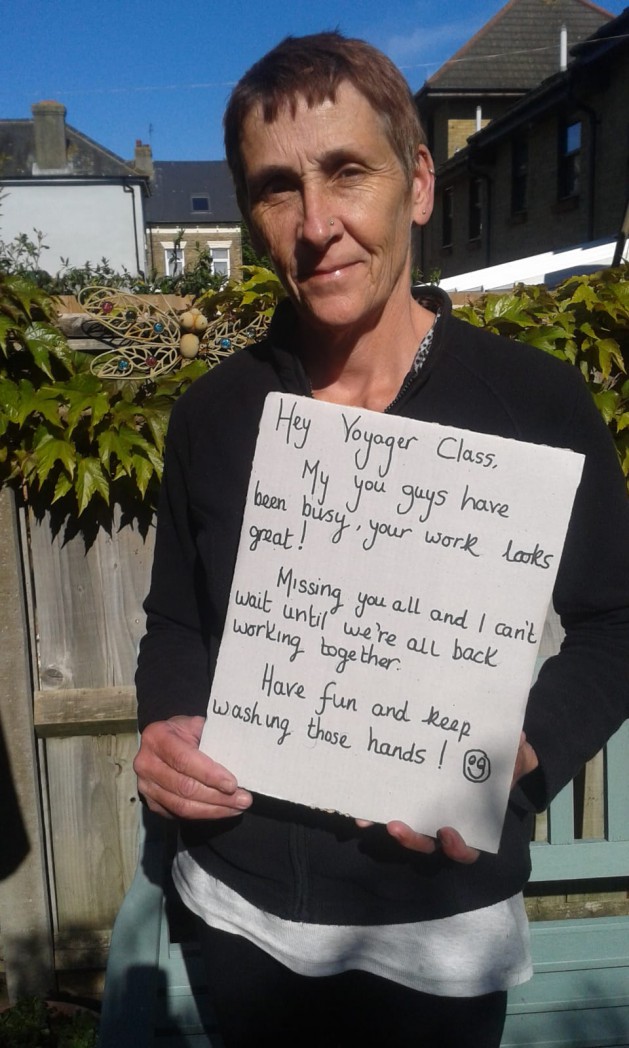 Hey Voyager Class,
My you guys have
been busy, your work looks
great!
Missing you all and I can't
wait until we're all back
working together.
Have fun and keep
washing those hands!